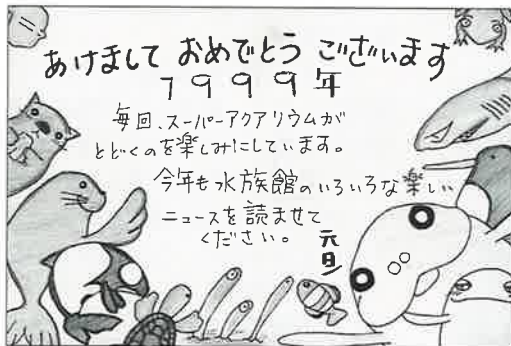 あけまして おめでとう ございます
1999年
毎回、スーパーアクアリウムが
とどくのを楽しみにしています。
今年も水族館のいろいろな楽しい
ニュースを読ませて
ください。
元旦